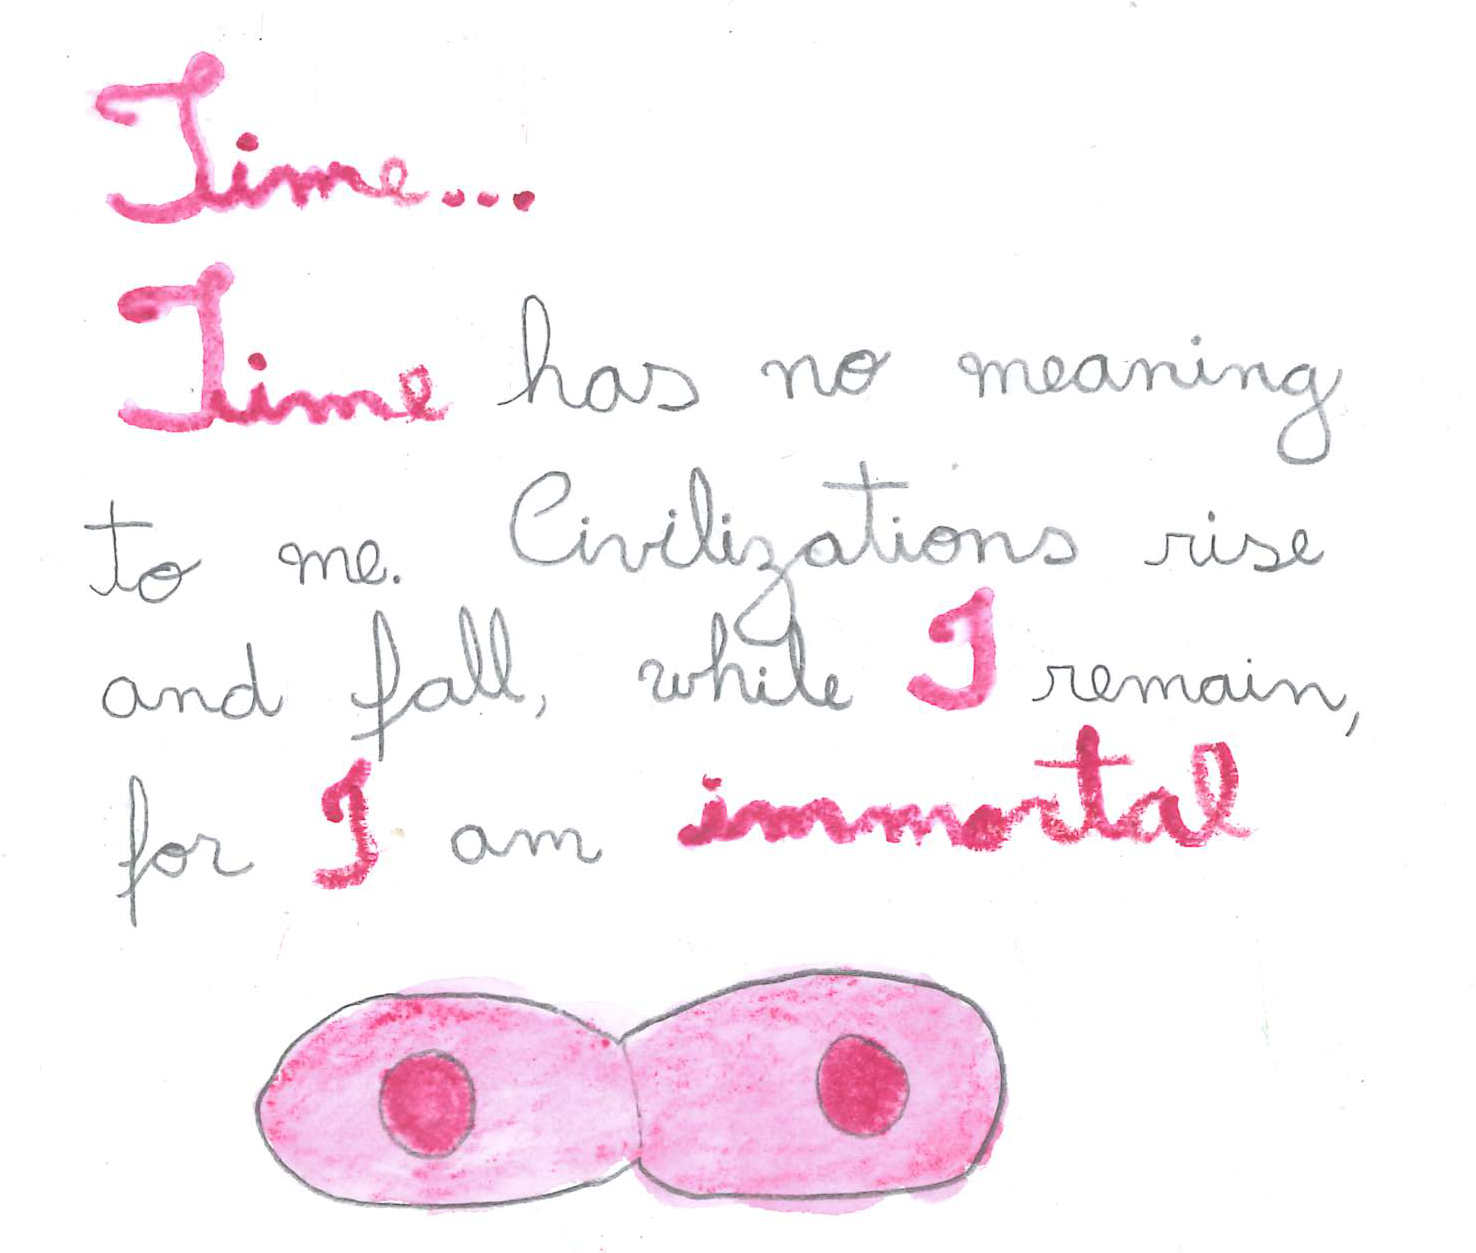 Time...
Time has no meaning
to me. Civilizations rise
and fall, while I remain,
for I am immortal